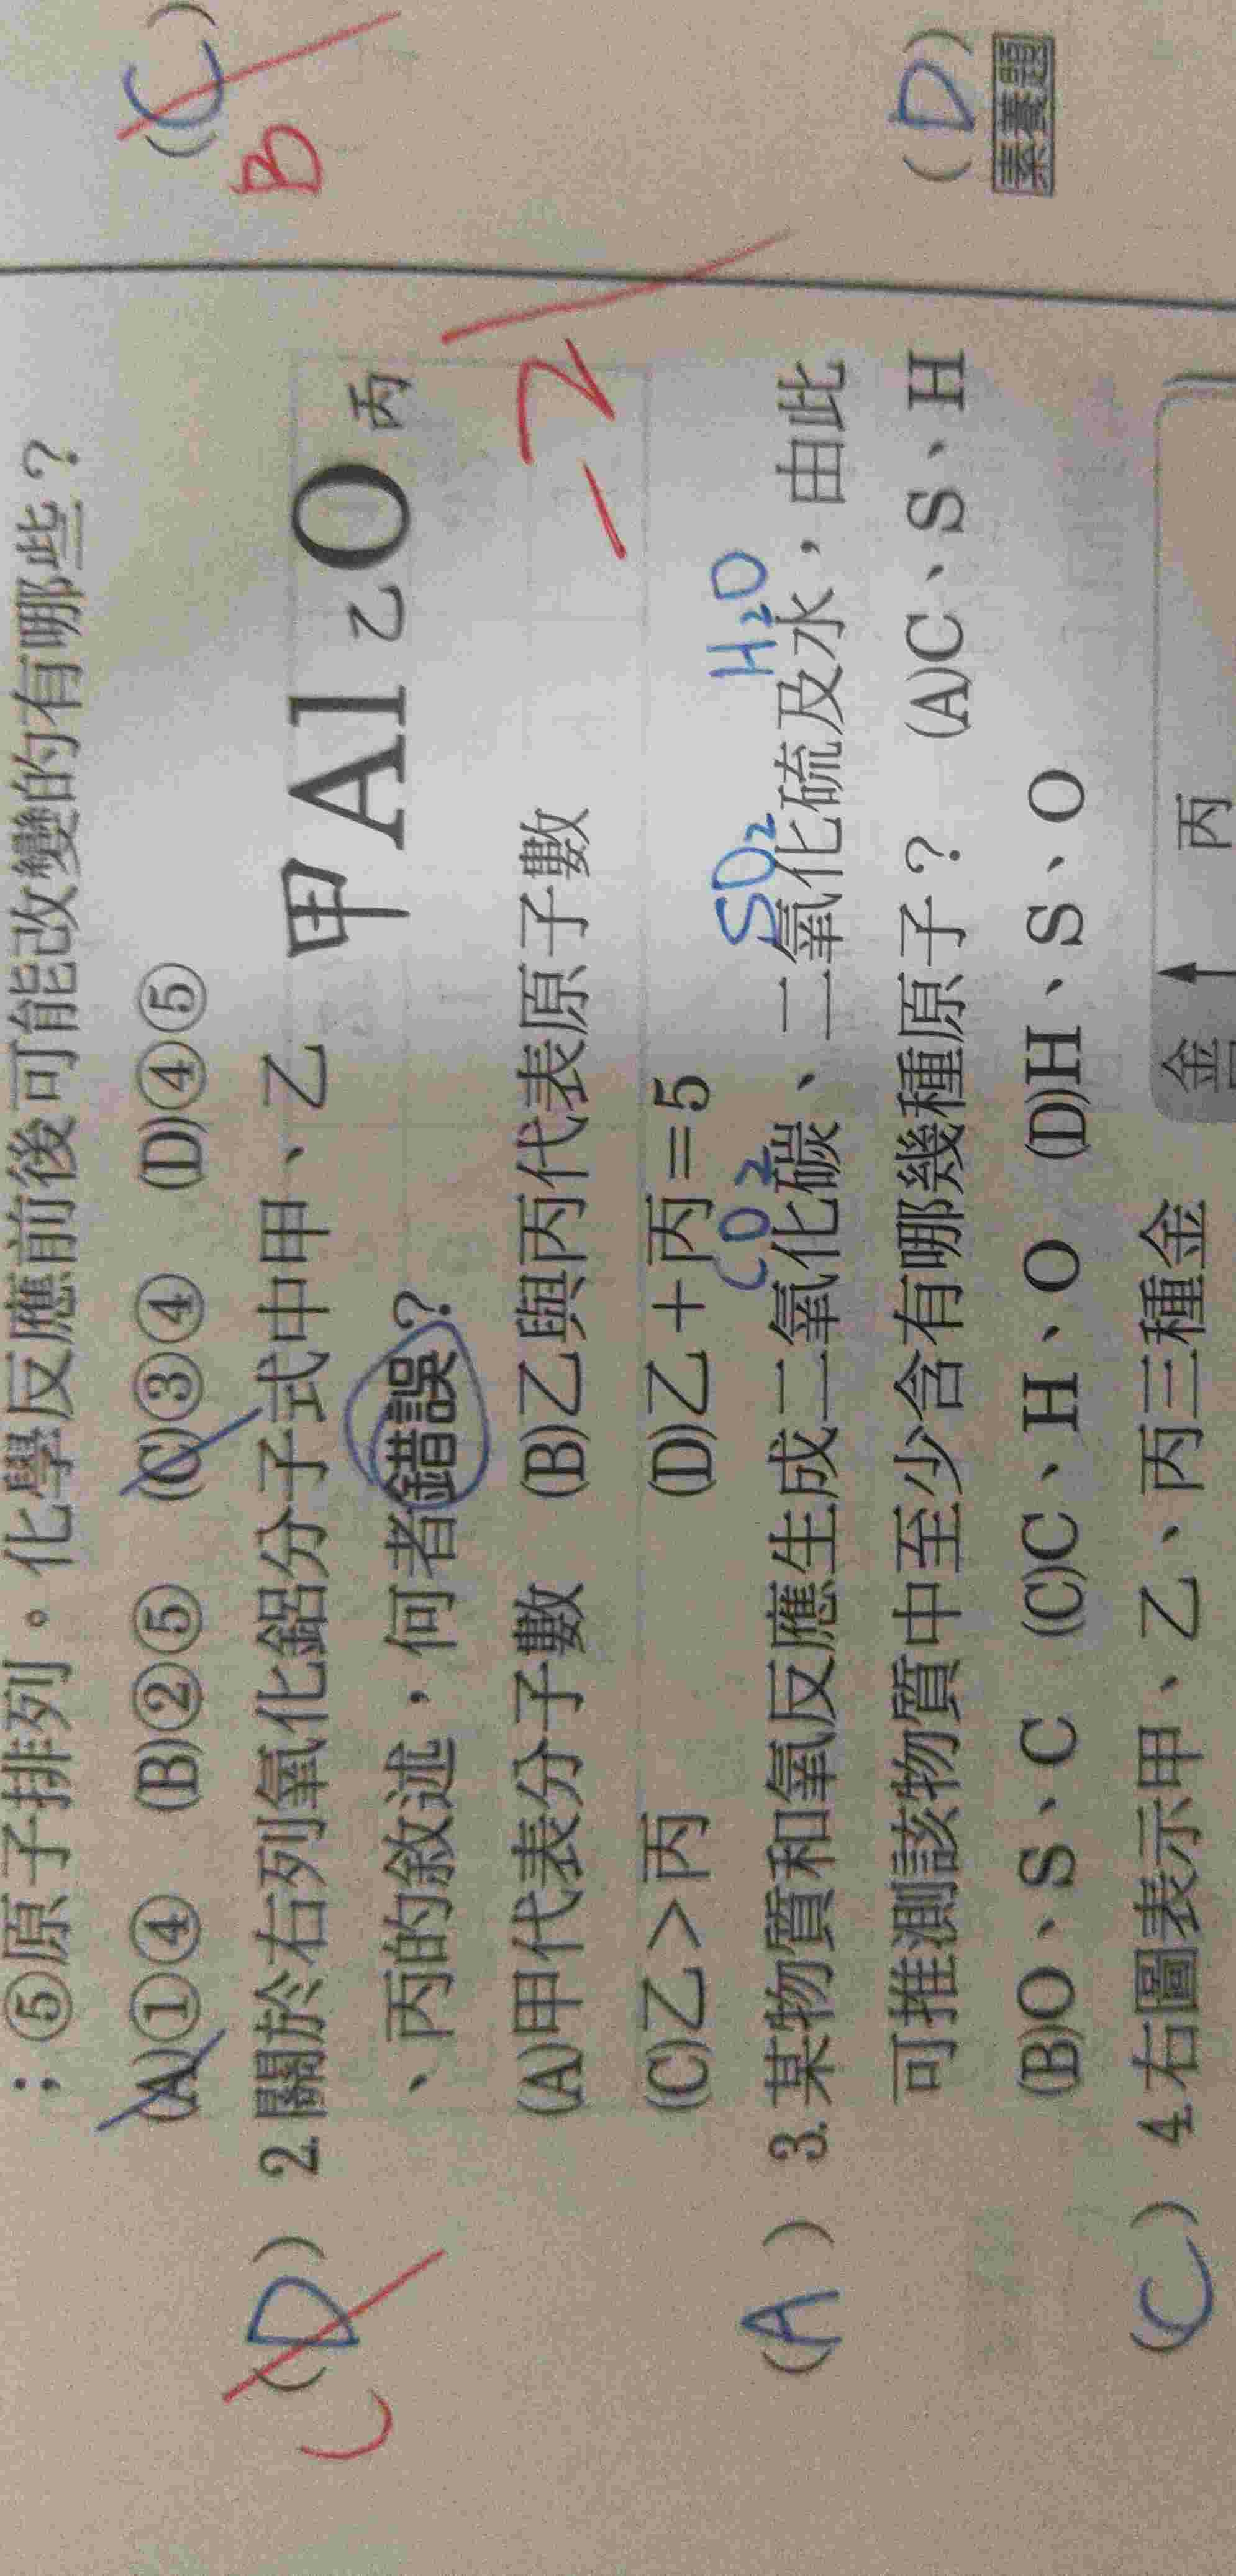 ；⑤原子排列。化學反應前後可能改變的有哪些？
(A)①④ (B)②⑤ (C)③④ (D)④⑤
(D) C 2. 關於右列氧化鋁分子式中甲、乙
甲Al乙O丙
、丙的敘述，何者錯誤？
(A)甲代表分子數 (B)乙與丙代表原子數
(C)乙＞丙 (D)乙＋丙＝5
-2
CO2 SO2 H2O
(A) 3. 某物質和氧反應生成二氧化碳、二氧化硫及水，由此
可推測該物質中至少含有哪幾種原子？ (A)C、S、H
(B)O、S、C (C)C、H、O (D)H、S、O
(C) 4. 右圖表示甲、乙、丙三種金
金
丙
(C)
B
(D)
素養題